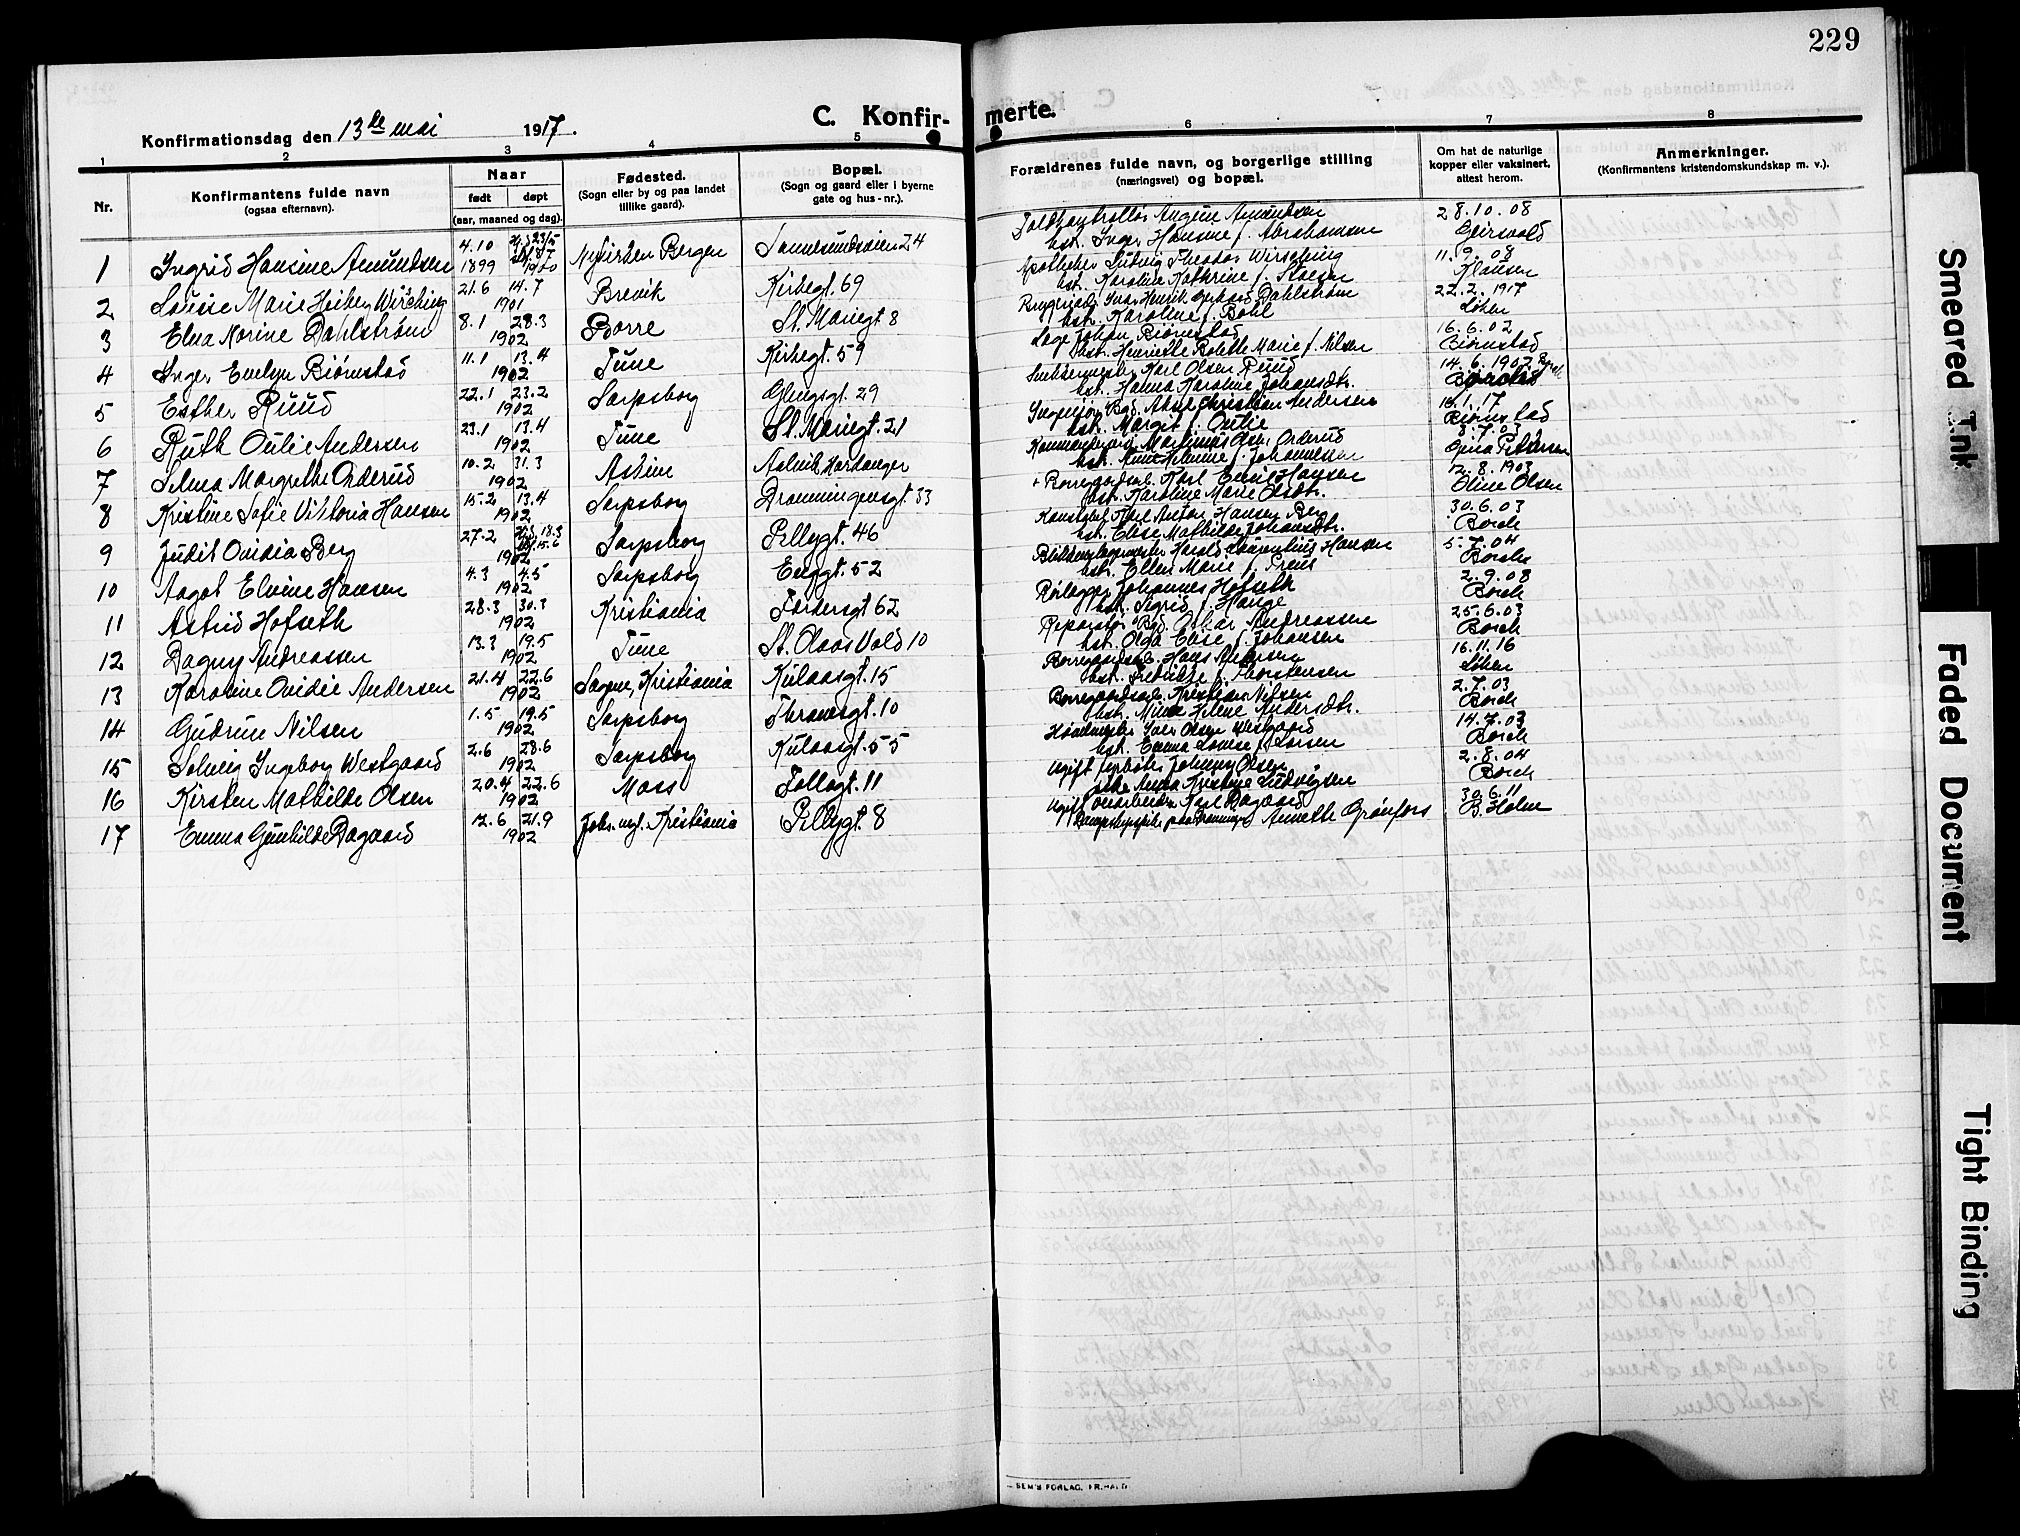 229
C. Konfirmerte.
Konfirmationsdag den 13de mai 1917.
1 2 3 4 5 6 7 8
Nr.
Konfirmantens fulde navn
(ogsaa efternavn).
Naar
født døpt
(aar, maaned og dag).
Fødested.
(Sogn eller by og paa landet
tillike gaard).
Bopæl.
(Sogn og gaard eller i byerne
gate og hus-nr.).
Forældrenes fulde navn, og borgerlige stilling
(næringsvei) og bopæl.
Om hat de naturlige
kopper eller vaksinert.
attest herom.
Anmerkninger.
(Konfirmantens kristendomskundskap m. v.).
1 Ingrid Hansine Amundsen 4.10 1899 1900 Nykirken Bergen Sannesundsveien 24
Toldkontrollør August Amundsen 28.10.08
hst. Inger Hansine f. Abrahamsen Geirvold
2 Louise Marie Heiberg Wirsching 21.6 14.7 1901 Brevik Kirkegt. 69
Apotheker Ludvig Theodor Wirsching 11.9.08
hst. Karoline Kathrine f. Klausen
3 Elna Norine Dahlstrøm 8.1 28.3 1902 Borre St. Mariegt 8
Henrik Gerhard Dahlstrøm 22.2.1917
hst. Karoline f. Bohl Løken
4 Inger Evelyn Bjørnstad 11.1 13.4 1902 Tune Kirkegt. 59
Læge Johan Bjørnstad 16.6.02
hst. Henriette Bolette Marie f. Nilsen Bjørnstad
5 Esther Ruud 22.1 23.2 1902 Sarpsborg Glengsgt. 29
Snekkermester Karl Olsen Ruud 14.6.1902
hst. Hanna Karoline Johansdtr. Bjørnstad
6 Ruth Oulie Andersen 23.1 13.4 1902 Tune St. Mariegt. 21
Axel Christian Andersen 16.1.17
hst. Margit f. Oulie Bjørnstad
7 Selma Margrethe Orderud 10.2 31.3 1902 Askim Aalvik Hardanger
Martinius Olsen Orderud 8.7.03
hst. Anne Helmine f. Johannessen Gina Petersen
8 Kristine Sofie Viktoria Hansen 15.2 13.4 1902 Sarpsborg Dronningensgt. 33
+ Borregaardsarb. Karl Emil Hansen 12.8.1903
hst. Karoline Marie Olsdtr. Oline Olsen
9 Judit Ovidia Berg 27.2 18.3 15.6 1902 Sarpsborg Pellygt. 46
Karl Anton Hansen Berg 30.6.03
hst. Elise Mathilde Johansdtr. Borch
10 Aagot Elvine Hansen 4.3 4.5 1902 Sarpsborg Enggt. 52
Blikkenslagermester Harald Laurentius Hansen 5.7.04
hst. Ellen Marie f. Preus Borch
11 Astrid Hofseth 28.3 30.3 1902 Kristiania Tordersgt 62
Rørlægger Johannes Hofseth 2.9.08
hst. Sigrid f. Hauge Borch
12 Dagny Andreassen 13.3 19.5 1902 Tune St. Olavs Vold 10
Reparatør Bgd. Oskar Andreassen 25.6.03
hst. Olga Elise f. Johansen Borch
13 Karoline Ovidie Andersen 21.4 22.6 1902 Sagene, Kristiania Kulaasgt. 15
Borregaardsarb. Hans Andersen 16.11.16
hst. Fredrikke f. Thorstensen Løken
14 Gudrun Nilsen 1.5 19.5 1902 Sarpsborg Thranesgt. 10
Borregaardsarb. Kristian Nilsen 2.7.03
hst. Mina Helene Andersdtr. Borch
15 Solveig Ingeborg Westgaard 2.6 28.6 1902 Sarpsborg Kulaasgt. 55
Iver Olsen Westgaard 14.7.03
hst. Emma Lovise f. Larsen Borch
16 Kirsten Mathilde Olsen 20.4 22.6 1902 Moss Tollogt. 11
Ugift fyrbøter Johnny Olsen 2.8.04
pike Anna Kristine Ludvigsen Borch
17 Emma Gunhilde Dagaard 12.6 21.9 1902 Joh. mgl. Kristiania Pellygt. 8
Ugift Karl Dagaard 30.6.11
Annette Grønfors B. Holm
SEM'S FORLAG, FR.HALD
Smeared Ink
Faded Document
Tight Binding